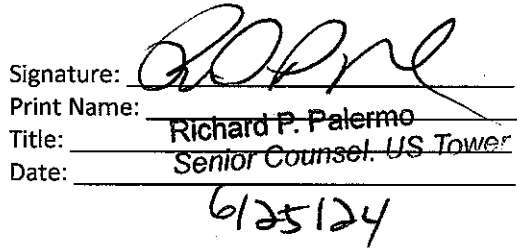 Signature:
Print Name: Richard P. Palermo
Title: Senior Counsel. US Tower
Date: 6/25/24